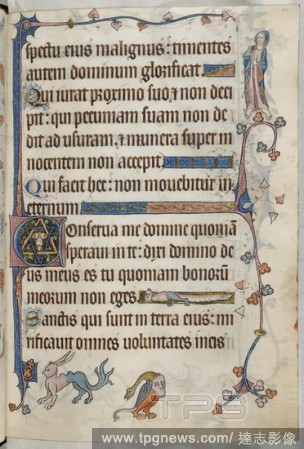 spectu eius malignus : timentes
autem dominum glorificat .
Qui iurat proximo suo ⁊ non deci
pit : qui pecuniam suam non de
dit ad usuram , ⁊ munera super in
nocentem non accepit
Qui facit hec : non mouebitur in
eternum
Conserua me domine quoniã
speraui in te : dixi domino de
us meus es tu quoniam bonorũ
meorum non eges
Sanctis qui sunt in terra eius : mi
rificauit omnes uoluntates
TPG
www.tpgnews.com/ 達志影像